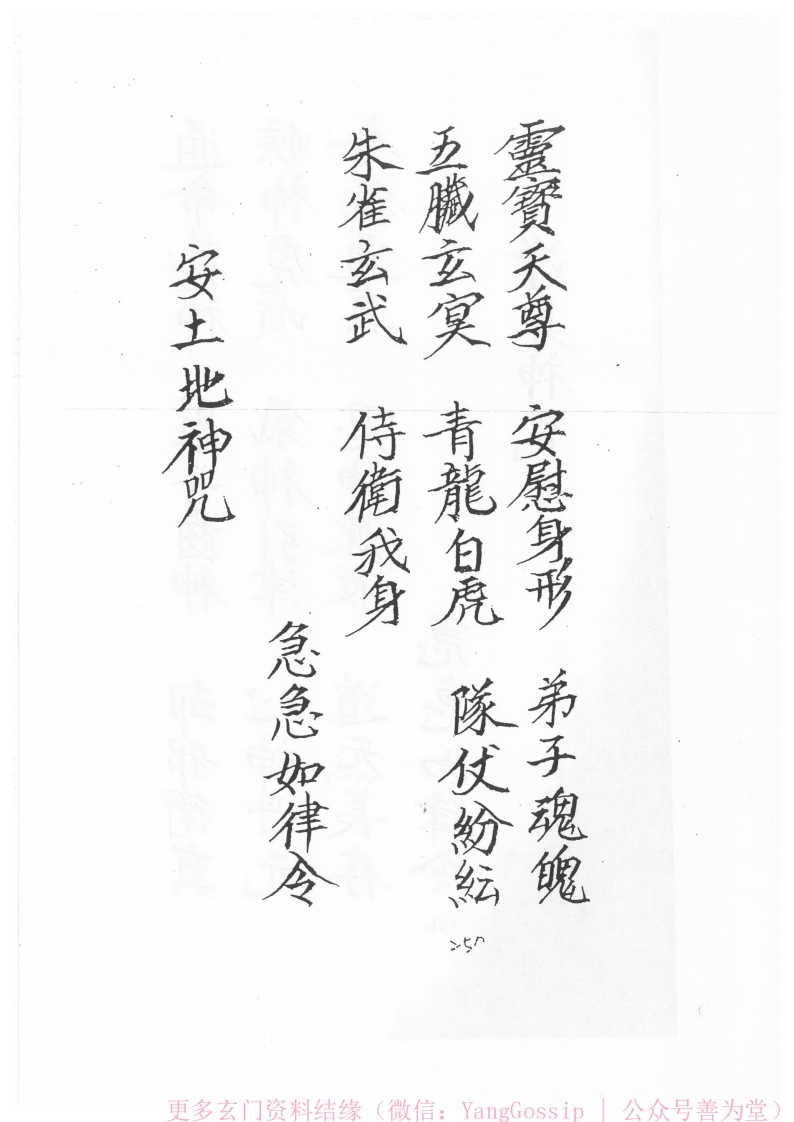 靈寶天尊　安慰身形　弟子魂魄
五臟玄冥　青龍白虎　隊仗紛紜
朱雀玄武　侍衛我身
急急如律令
安土地神咒
更多玄门资料结缘（微信：YangGossip | 公众号善为堂）